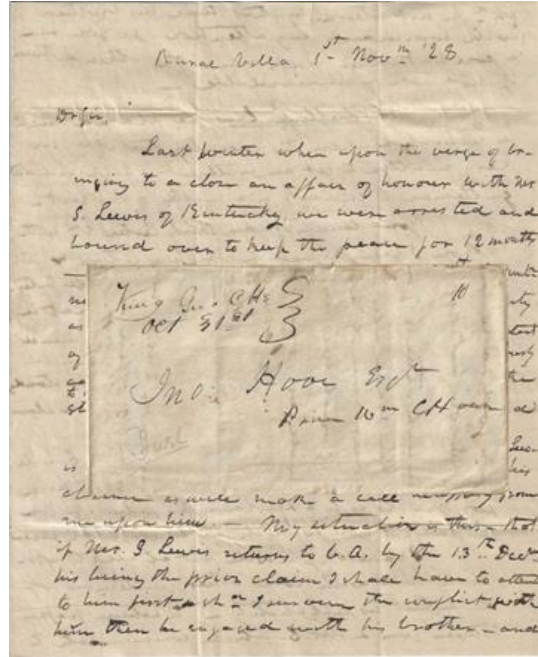 Rural Villa, 1st Novm '28
Dr Sir,
Last winter when upon the verge of br-
inging to a close an affair of honour with Mr
S. Lewis of Kentucky we were arrested and
bound over to keep the peace for 12 months
King Geo. C Hs
Oct 31st
10
Jno. Hooe Esqr
Prince Wm CHouse
is
his
claim as will make a call necessary from
me upon him. — My situation is this — that
if Mr. S Lewis returns to V.A. by the 13th Decr
his being the prior claim I shall have to attend
to him first &
I survive the conflict with
him then be engaged with his brother — and